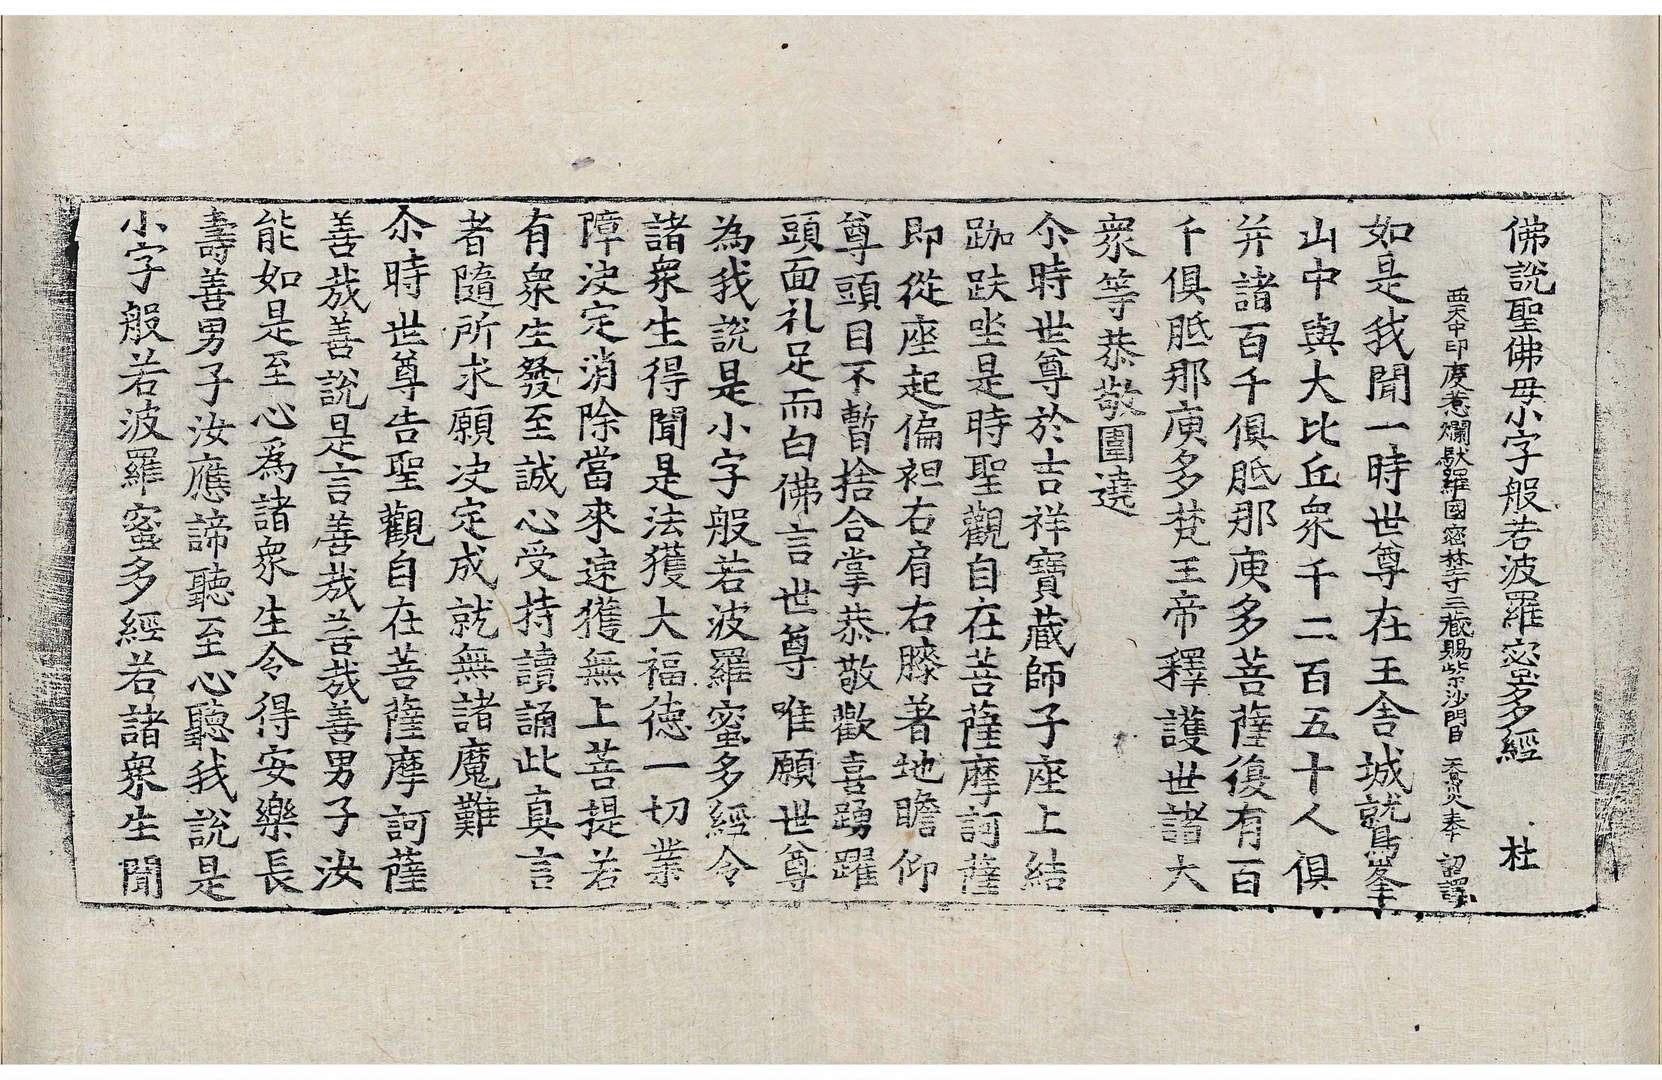 佛說聖佛母小字般若波羅蜜多經 杜
西天中印度惹爛馱羅國密林寺三藏賜紫沙門臣 天息災奉 詔譯
如是我聞一時世尊在王舍城鷲峯
山中與大比丘衆千二百五十人俱
并諸百千俱胝那庾多菩薩復有百
千俱胝那庾多梵王帝釋護世諸大
衆等恭敬圍遶
尒時世尊於吉祥寶藏師子座上結
跏趺坐是時聖觀自在菩薩摩訶薩
即從座起偏袒右肩右膝著地瞻仰
尊頭目不暫捨合掌恭敬歡喜踴躍
頭面礼足而白佛言世尊唯願世尊
為我說是小字般若波羅蜜多經令
諸衆生得聞是法獲大福德一切業
障決定消除當來速獲無上菩提若
有衆生發至誠心受持讀誦此真言
者隨所求願決定成就無諸魔難
尒時世尊告聖觀自在菩薩摩訶薩
善哉善說是言善哉善哉善男子汝
能如是至心爲諸衆生令得安樂長
壽善男子汝應諦聽至心聽我說是
小字般若波羅蜜多經若諸衆生聞